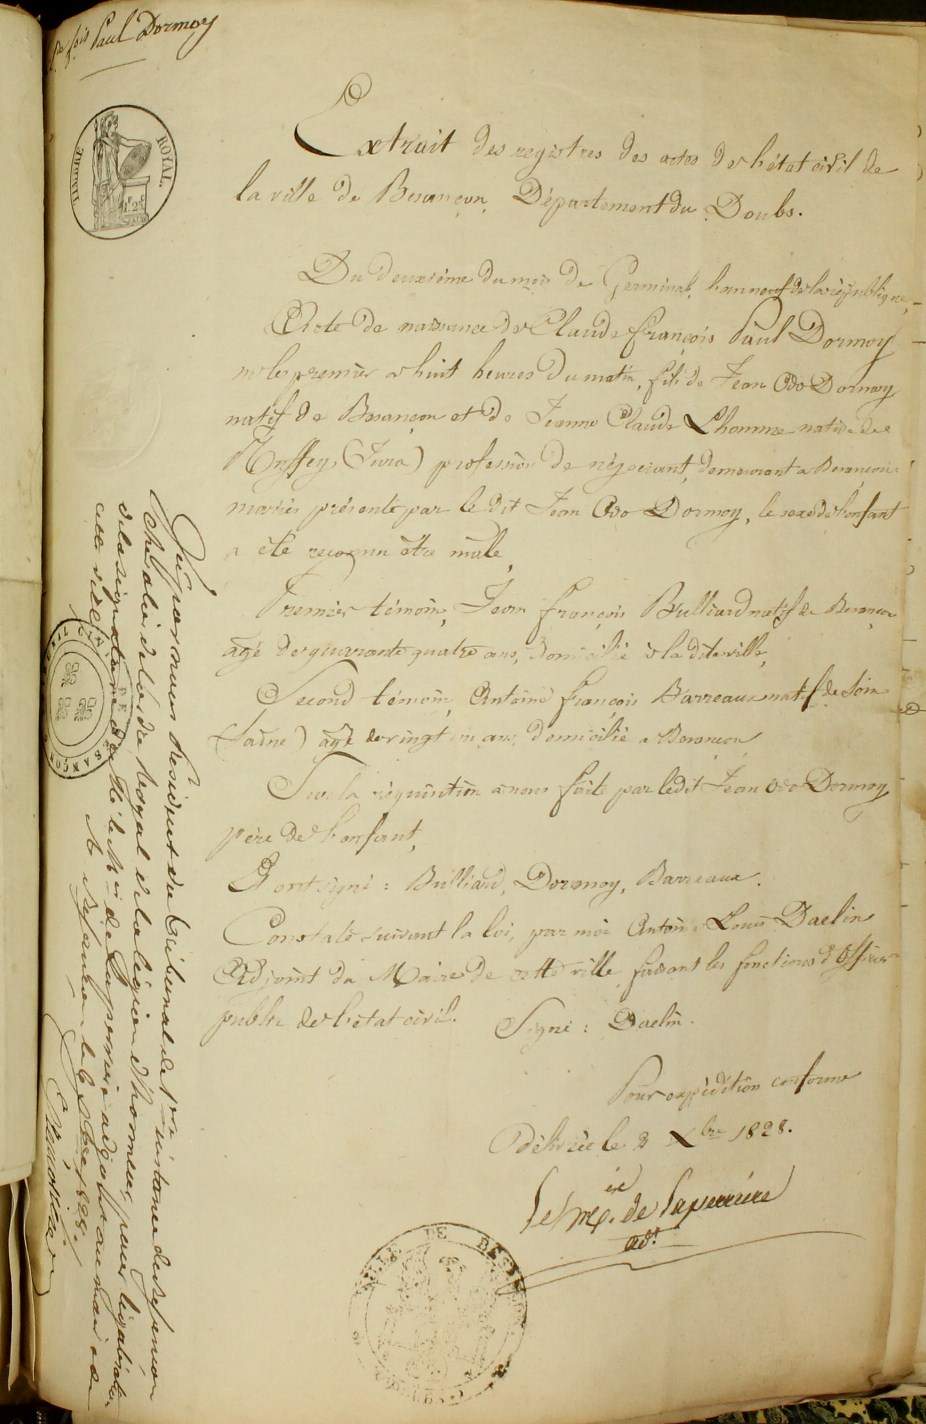 fois Paul Dormoy
TIMBRE ROYAL.
Extrait des registres des actes de l'état civil de
la ville de Besançon, Département du Doubs.
Du deuxième du mois de Germinal, l'an neuf de la république,
Acte de naissance de Claude françois Paul Dormoy
né le premier à huit heures du matin, fils de Jean Odo Dormoy
natif de Besançon et de Jeanne Claude Lhomme native de
Ruffey (Jura) profession de négociant, demeurant à Besançon
mariés présenté par le dit Jean Odo Dormoy, le sexe de l'enfant
a été reconnu être mâle,
Premier témoin, Jean françois Brulliard natif de Besançon
âgé de quarante quatre ans, domicilié à la dite ville,
Second témoin, Antoine françois Barreaux natif de
(Saône) âgé de vingt un ans, domicilié à Besançon
Sur la réquisition à nous faite par ledit Jean Odo Dormoy
père de l'enfant,
Ont signé : Brulliard, Dormoy, Barreaux.
Constaté suivant la loi, par moi Antoine Louis Daclin
Adjoint du Maire de cette ville faisant les fonctions d'officier
public de l'état civil. Signé : Daclin.
Pour expédition conforme
Délivrée le 3 Xbre 1828.
le Mis. de Laperrière
adt.
VILLE DE BESANÇON
Vu par nous Président du tribunal de 1ère instance de Besançon
Chevalier de l'ordre Royal de la légion d'honneur, pour légalisation
de la signature de Mr le Mis de Laperrière adjoint au Maire de
cette ville.
A Besançon le Xbre 1828.